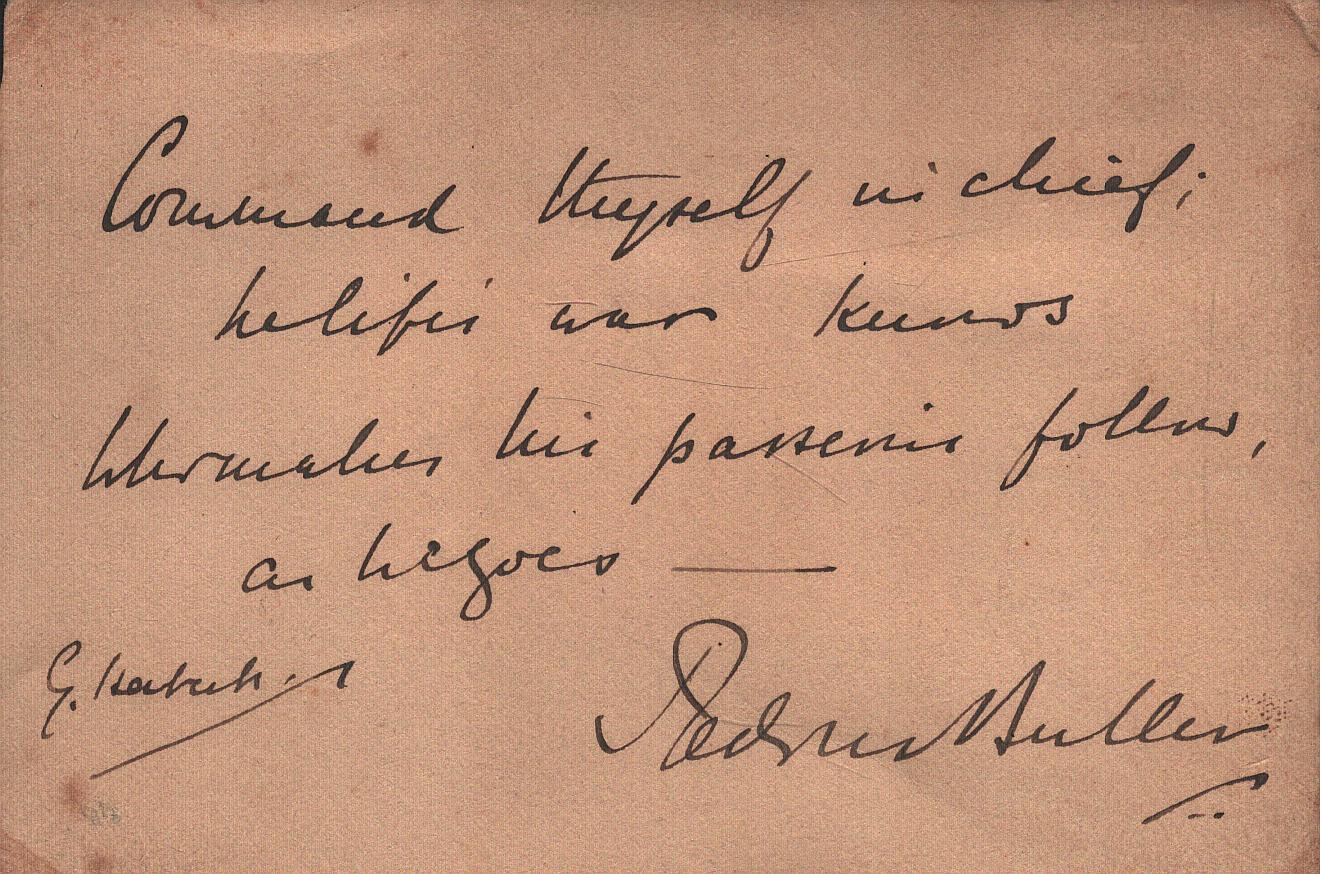 Command thyself in chief;
he life's war knows
Who makes his passions follow,
as he goes —
G. Herbert.
Redvers Buller